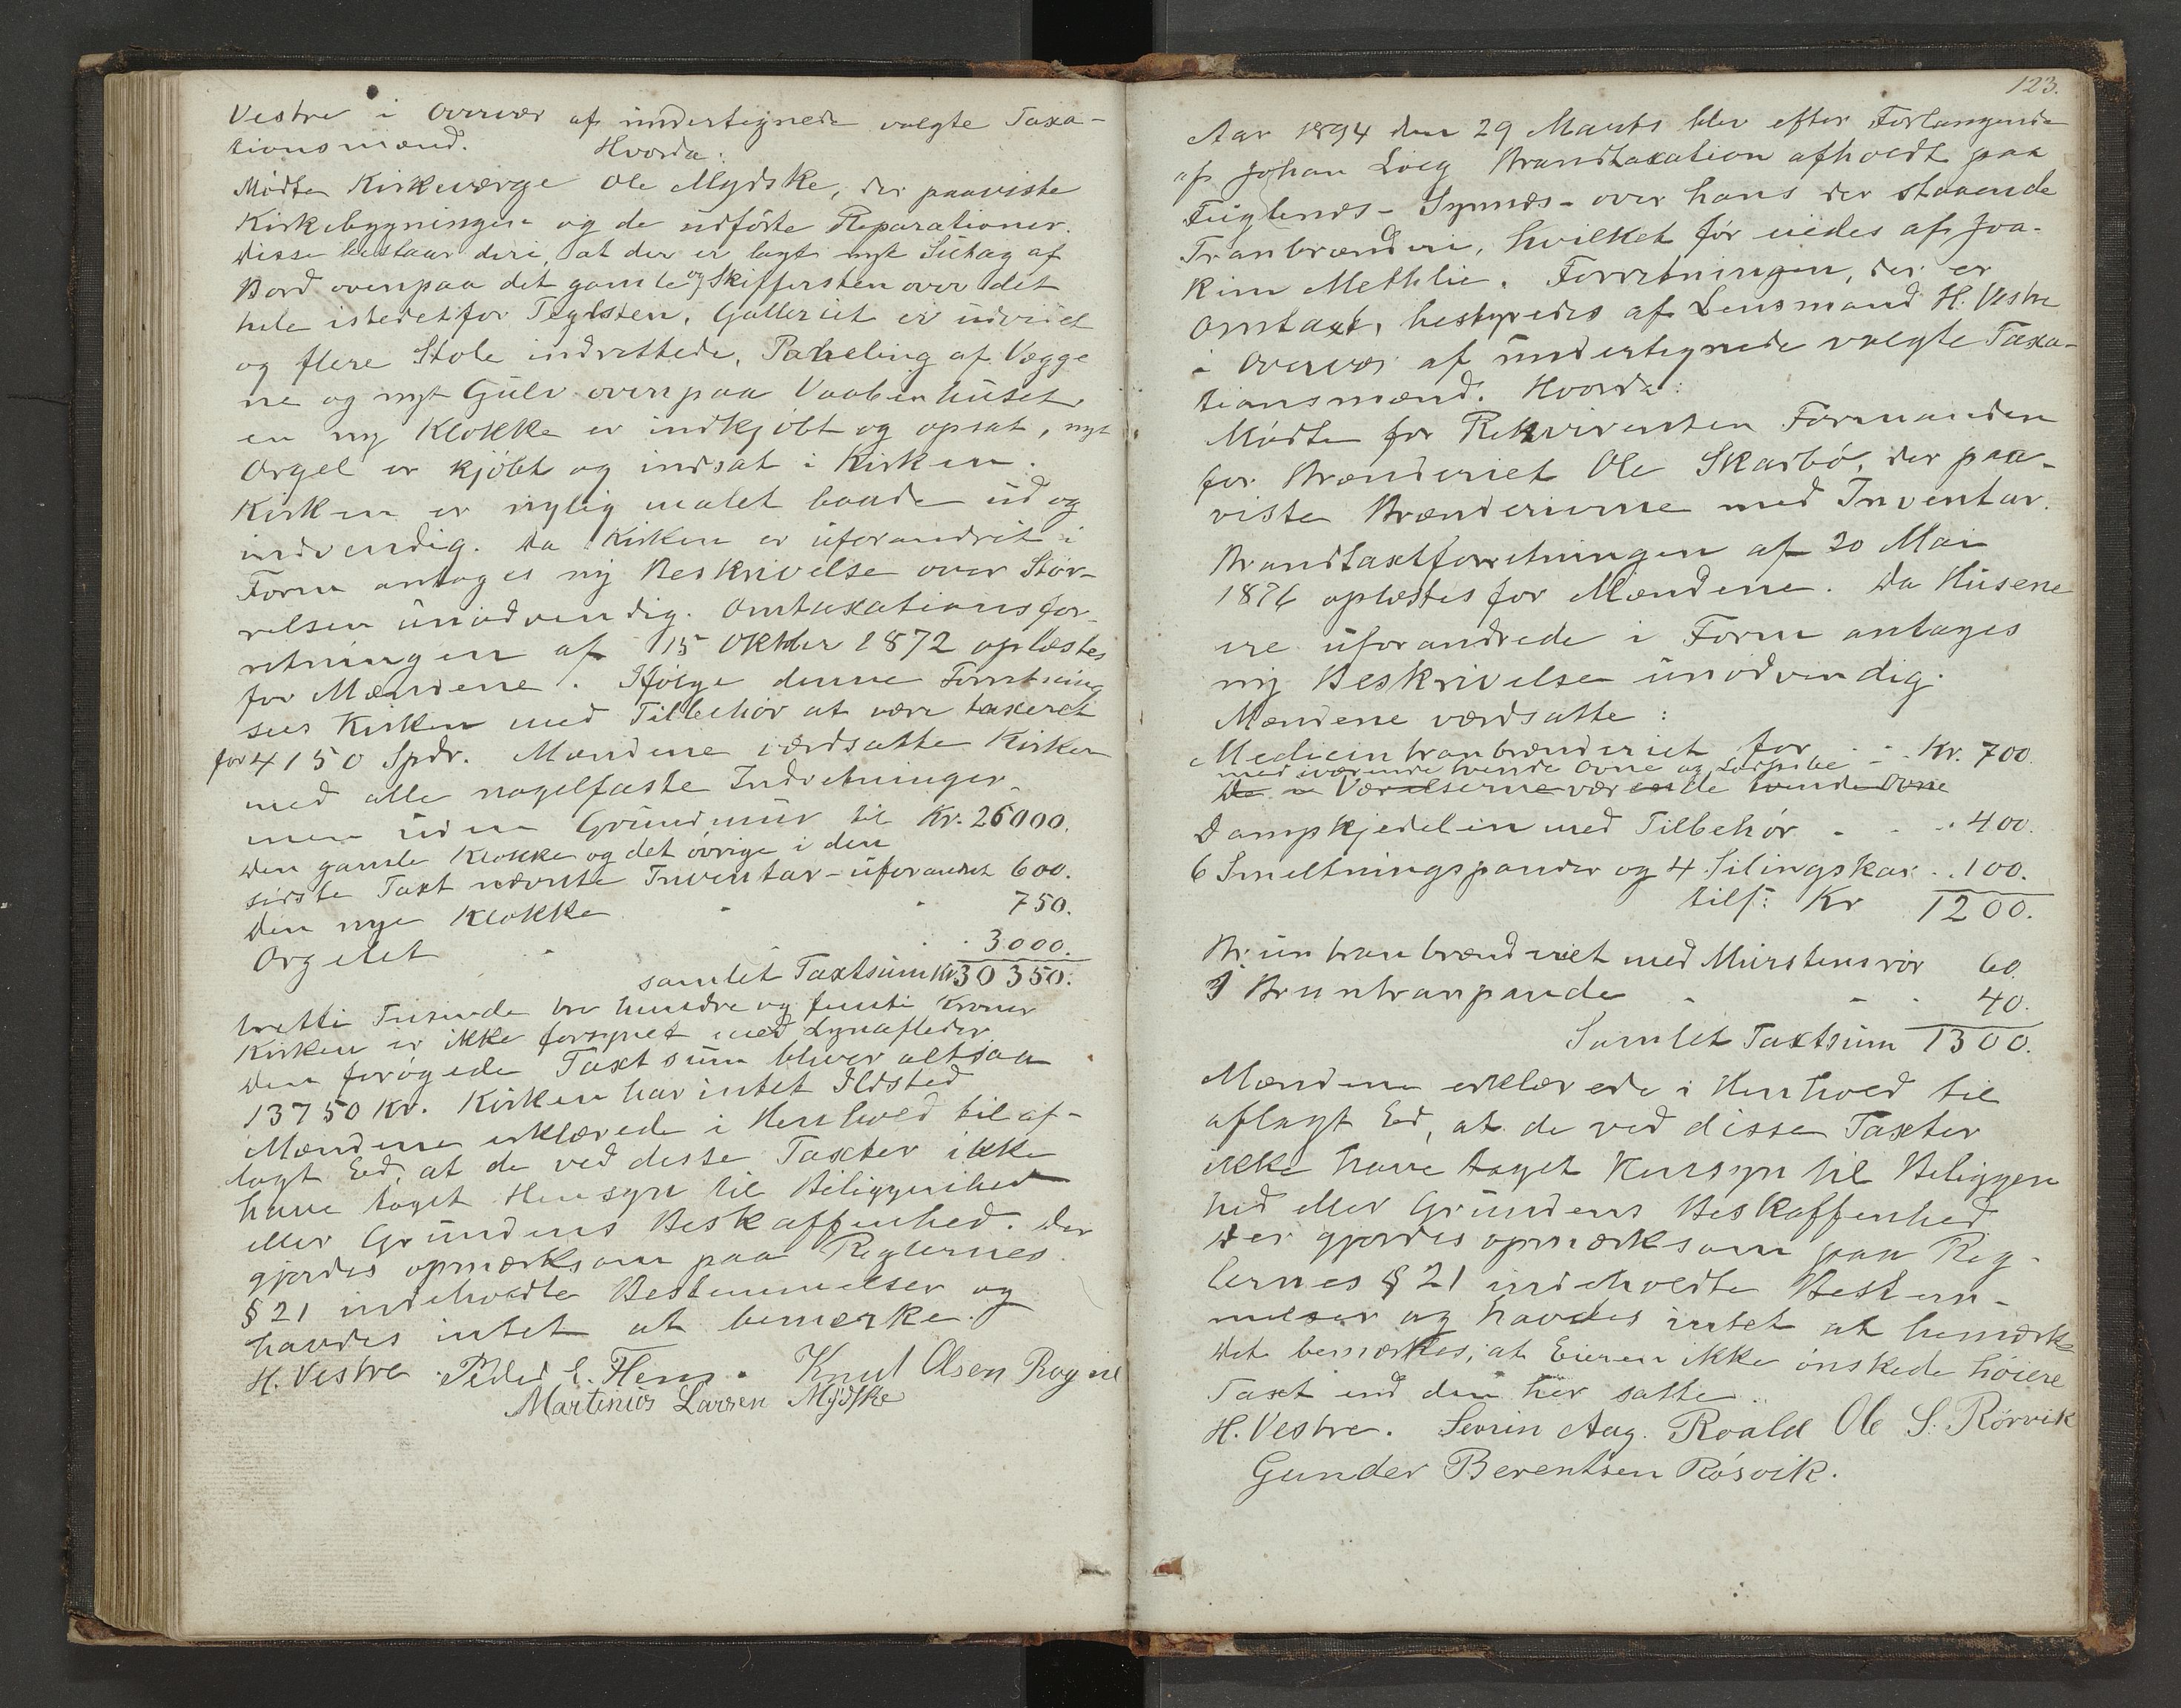 Vestre i Overvær af undertegnede valgte Taxa-
tionsmænd. Hvorda:
Mødte Kirkeværge Ole Mydske, der paaviste
Kirkebygningen og de udførte Reparationer.
Disse bestaar deri, at der er lagt nyt Sutag af
Bord ovenpaa det gamle og Skiffersten over det
hele istedetfor Teglsten, Galleriet er udvidet
og flere Stole indrettede, Paneling af Vægge
ne og nyt Gulv ovenpaa Vaabenhuset
en ny Klokke er indkjøbt og opsat, nyt
Orgel er kjøbt og indsat i Kirken.
Kirken er nylig malet baade ud og
indvendig. Da Kirken er uforandret i
Form antoges ny Beskrivelse over Stør-
relsen unødvendig. Omtaxationsfor-
retningen af 15 Oktber 1872 oplæstes
for Mændene. Ifølge denne Forretning
sees Kirken med Tilbehør at være taxeret
for 4150 Spdr. Mændene værdsatte Kirken
med alle nagelfaste Indretninger
men uden Grundmur til Kr. 26000.
Den gamle Klokke og det øvrige i den
sidste Taxt nævnte Inventar - uforandret 600.
Den nye Klokke - - 750.
Orgelet - . . 3000.
samlet Taxtsum Kr 30350.
tretti Tusinde tre hundre og femti Kroner
Kirken er ikke forsynet med Lynafleder
Den forøgede Taxtsum bliver altsaa
13750 Kr. Kirken har intet Ildsted
Mændene erklærede i Henhold til af-
lagt Eed, at de ved disse Taxter ikke
have taget Hensyn til Beliggenhed
eller Grundens Beskaffenhed. Der
gjordes opmærksom paa Reglernes
§ 21 indeholdte Bestemmelser og
havdes intet at bemærke.
H. Vestre Peder E. Hens. Knud Olsen Rogne
Martinius Larsen Mydske
123.
Aar 1894 den 29 Marts blev efter Forlangende
af Johan Loeg Brandtaxation afholdt paa
Fuglenes - Synnes - over hans der staaende
Tranbrænderi, hvilket før eiedes af Joa-
kim Methlie. Forretningen, der er
Omtaxt, bestyredes af Lensmand H. Vestre
i Overvær af undertegnede valgte Taxa-
tionsmænd. Hvorda:
Mødte for Rekvirenten Formanden
for Brænderiet Ole Skarbø, der paa-
viste Brænderierne med Inventar.
Brandtaxtforretningen af 20 Mai
1876 oplæstes for Mændene. Da Husene
ere uforandrede i Form antages
ny Beskrivelse unødvendig.
Mændene værdsatte:
Medicintranbrænderiet for - - Kr. 700.
med værende tvende Ovne og
De i Værelserne værende tvende Ovne
Dampkjedelen med Tilbehør - - 400.
6 Smeltningspander og 4 Silingskar . . 100.
tils: Kr 1200.
Bruntranbrænderiet med Murstensrør 60.
1 Bruntranpande - - - 40.
Samlet Taxtsum 1300.
Mændene erklærede i Henhold til
aflagt Ed, at de ved disse Taxter
ikke have taget Hensyn til Beliggen
hed eller Grundens Beskaffenhed
Der gjordes opmærksom paa Reg-
lernes § 21 indeholdte Bestem-
melser og havdes intet at bemærke
Det bemærkes, at Eieren ikke ønskede høiere
Taxt end den her satte.
H. Vestre. Severin Aag. Roald Ole S. Rørvik
Gunder Berentsen Røsvik.